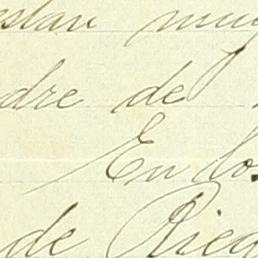 estan muy
dre de
En lo
de Rieg